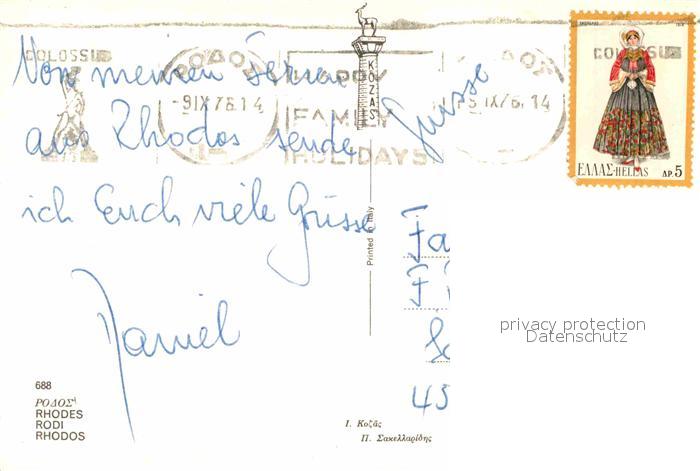 COLOSSU
ΡΟΔΟΣ
-9 IX 76. 14
HAPPY
FAMILY
HOLIDAYS
ΚΟΖΑΣ
COLOSSU
IX 76. 14
ΕΛΛΑΣ-HELLAS ΔΡ. 5
Von meinen Ferien
aus Rhodos sende
ich Euch viele Grüsse
Daniel
Grüsse
Printed in Italy
Fa
F
45
privacy protection
Datenschutz
688
ΡΟΔΟΣ
RHODES
RODI
RHODOS
Ι. Κοζᾶς
Π. Σακελλαρίδης